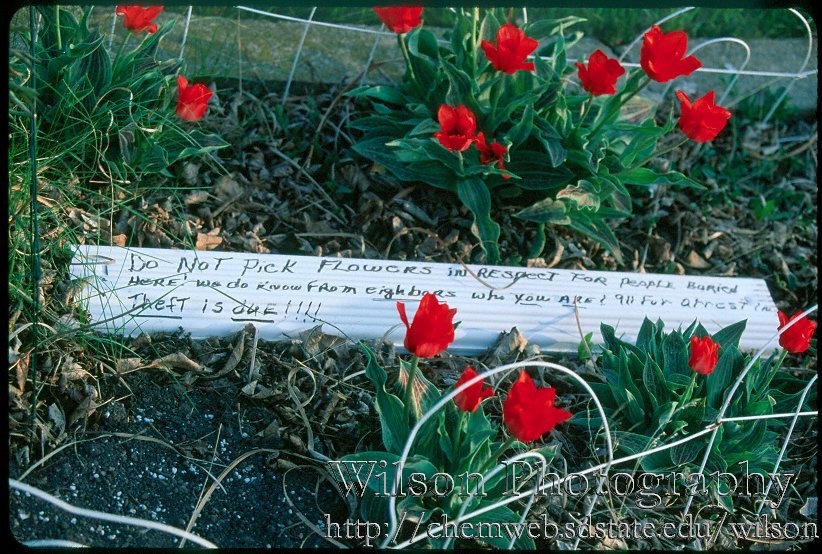 Do Not Pick Flowers in Respect For People Buried
Here; we do know From eighbors who you are! 911 For arrest in
Theft is due!!!!
Wilson Photography
http://chemweb.sdstate.edu/wilson